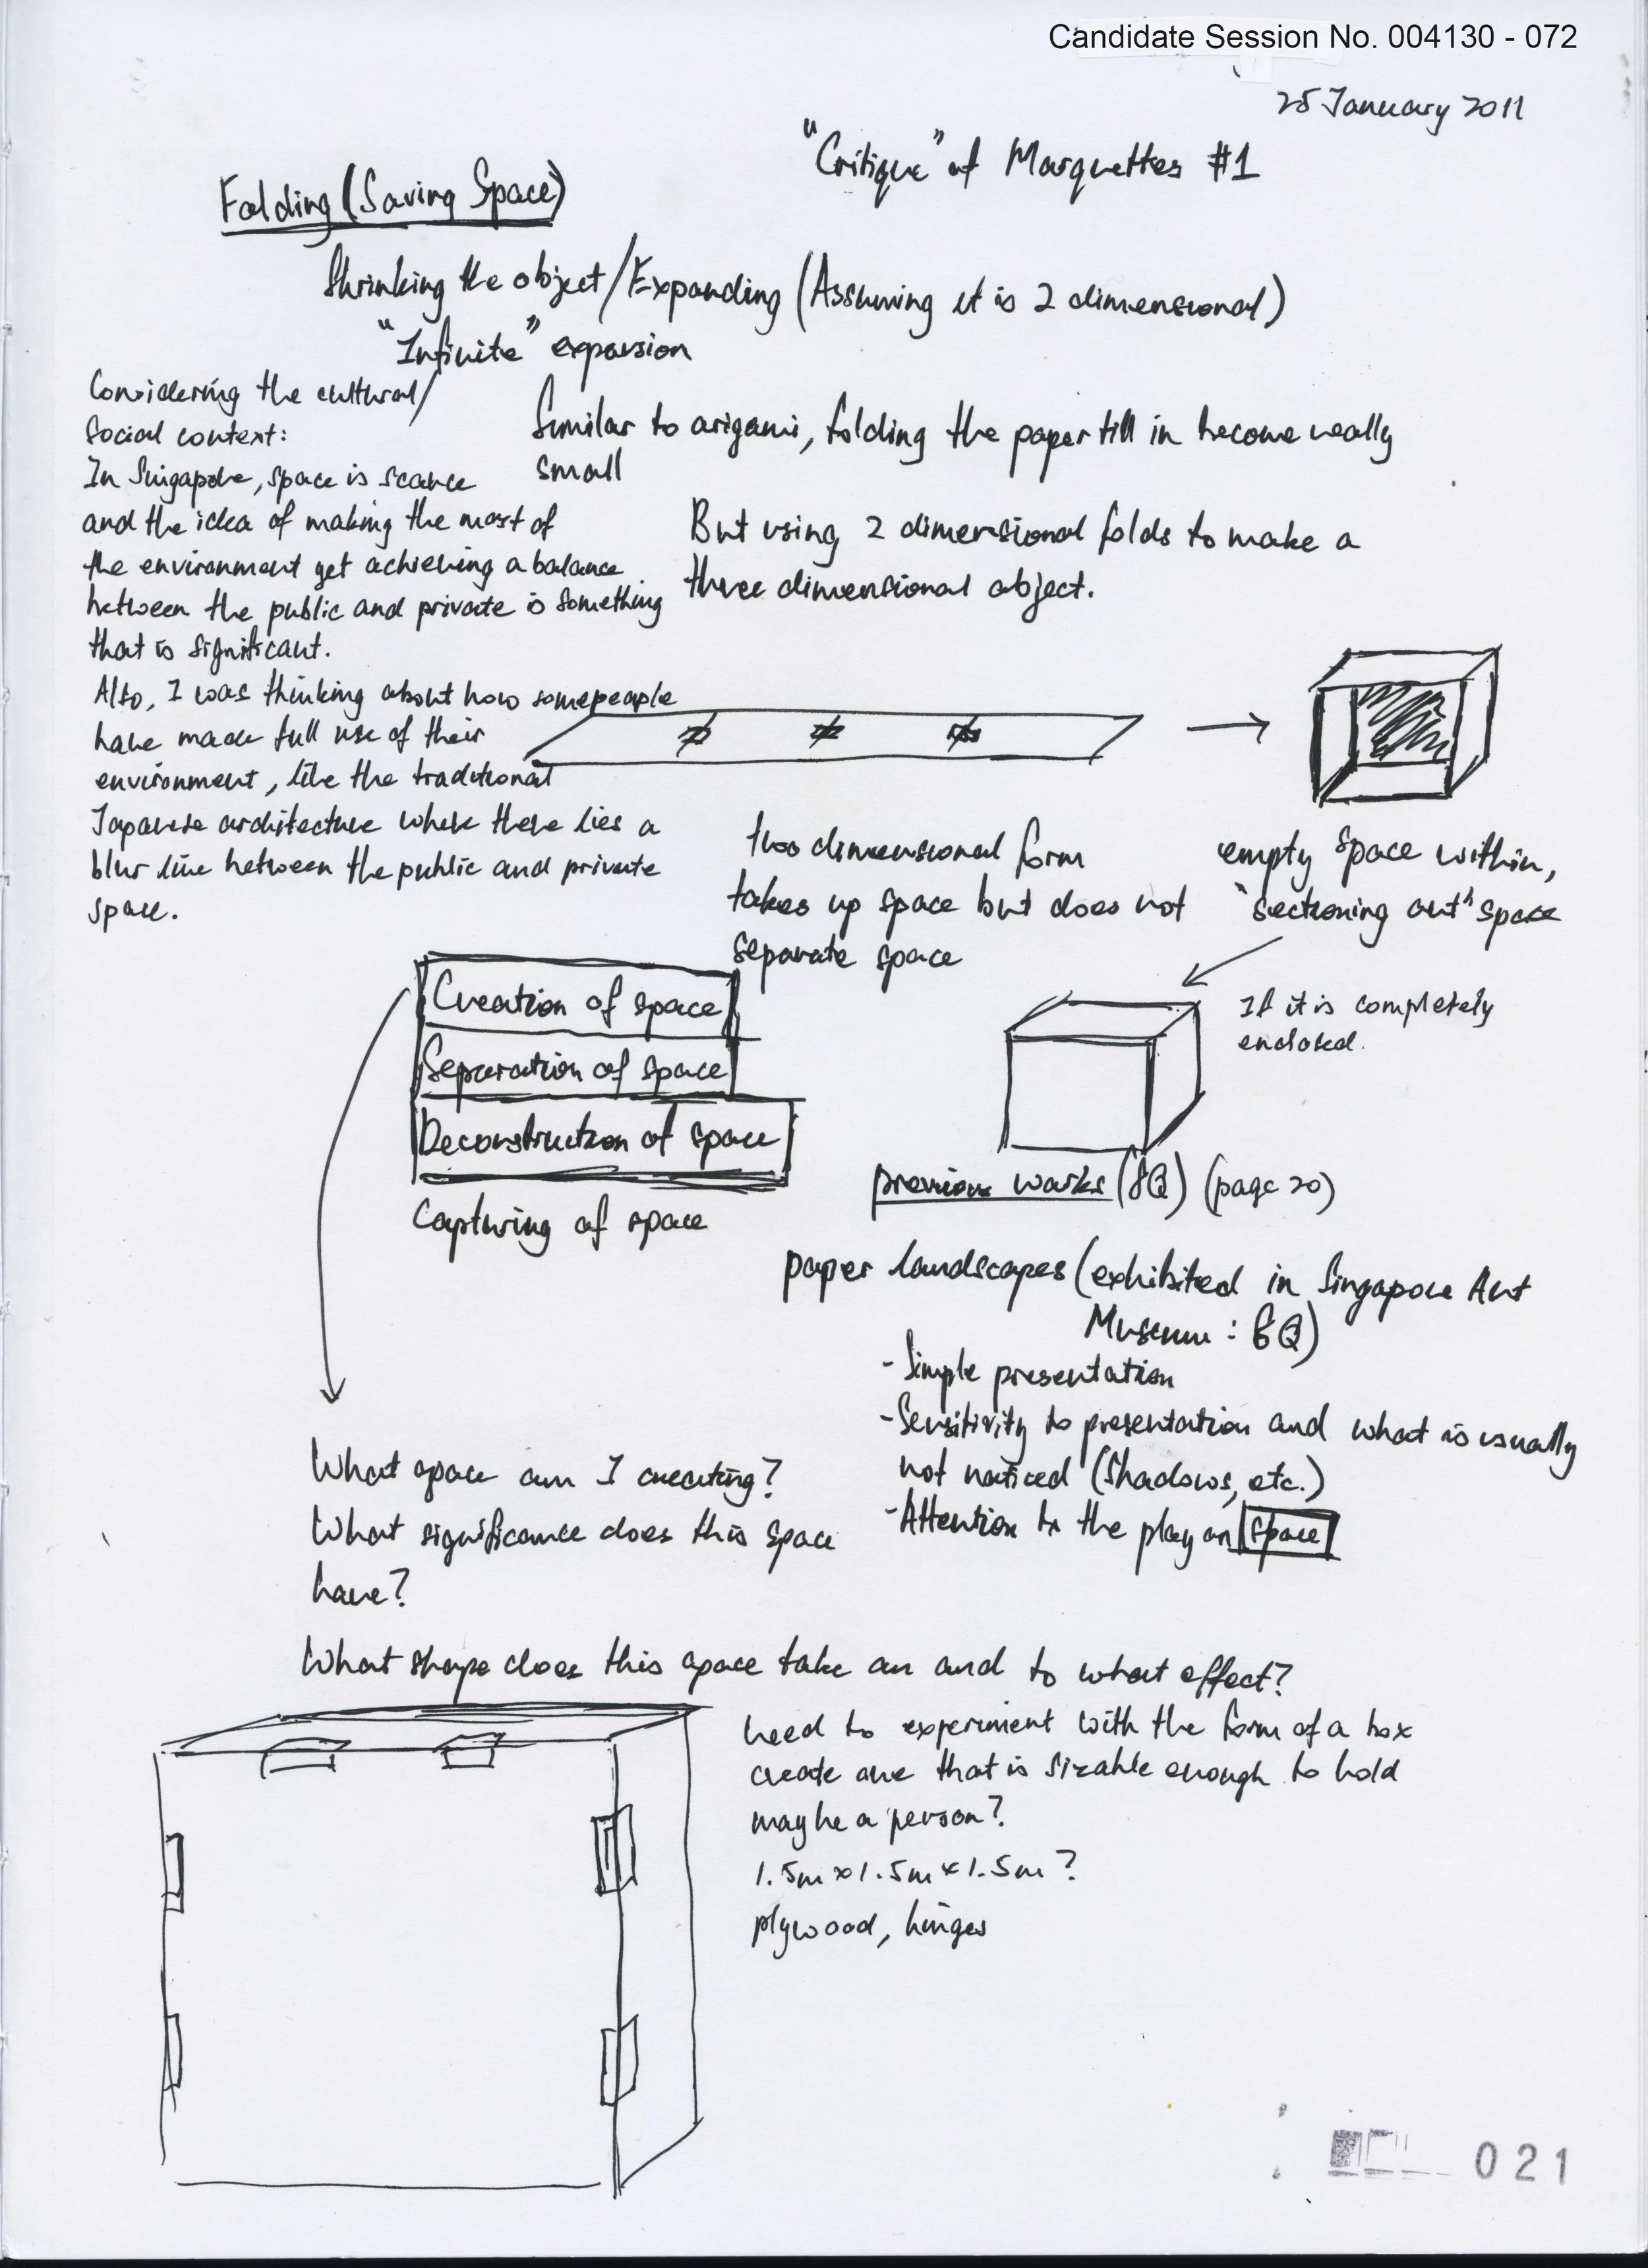 Candidate Session No. 004130 - 072
25 January 2011
"Critique" of Marquettes #1
Folding (Saving Space)
Shrinking the object/Expanding (Assuming it is 2 dimensional)
"Infinite" expansion
Considering the cultural/
Social context:
In Singapore, space is scarce
and the idea of making the most of
the environment yet achieving a balance
between the public and private is something
that is significant.
Also, I was thinking about how some people
have made full use of their
environment, like the traditional
Japanese architecture where there lies a
blur line between the public and private
space.
Similar to origami, folding the paper till in become really
small
But using 2 dimensional folds to make a
three dimensional object.
two dimensional form
takes up space but does not
separate space
empty space within,
"sectioning out" space
If it is completely
enclosed.
Creation of space
Separation of space
Deconstruction of space
Capturing of space
previous works (8Q) (page 20)
paper landscapes (exhibited in Singapore Art
Museum : 8Q)
- Simple presentation
- Sensitivity to presentation and what is usually
not noticed (Shadows, etc.)
- Attention to the play on space
What space am I creating?
What significance does this space
have?
What shape does this space take on and to what effect?
need to experiment with the form of a box
create one that is sizable enough to hold
maybe a person?
1.5m x 1.5m x 1.5m ?
plywood, hinges
021